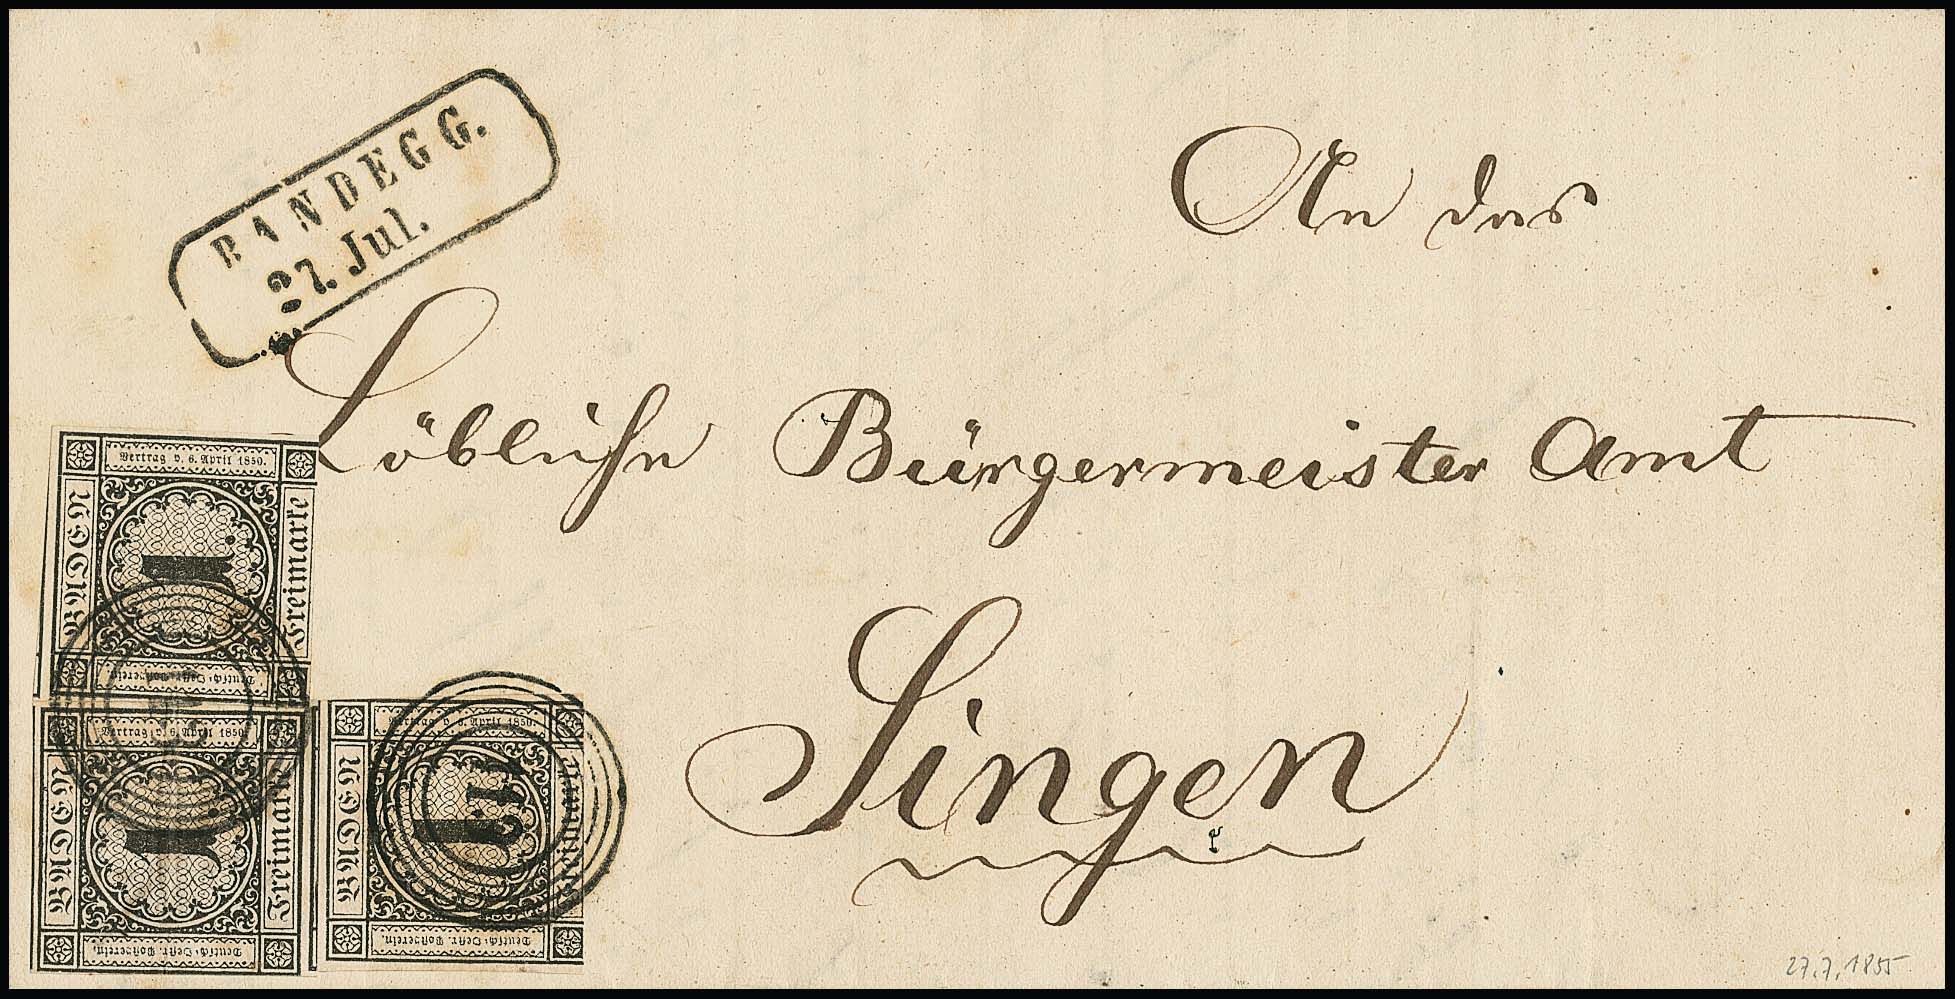 RANDEGG.
27. Jul.
An das
Löbliche Bürgermeister Amt
Singen
Vertrag v. 6. April 1850.
BADEN
1.
Freimarke
Deutsch-Oestr. Postverein.
Vertrag v. 6. April 1850.
BADEN
1.
Freimarke
Deutsch-Oestr. Postverein.
Vertrag v. 6. April 1850.
BADEN
1.
Freimarke
Deutsch-Oestr. Postverein.
27.7.1855